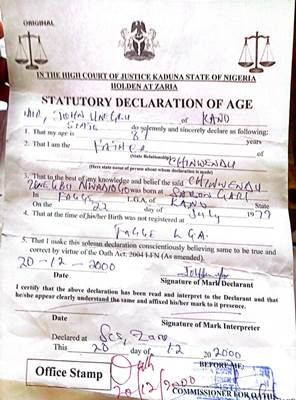 ORIGINAL
IN THE HIGH COURT OF JUSTICE KADUNA STATE OF NIGERIA
HOLDEN AT ZARIA
STATUTORY DECLARATION OF AGE
of KANO
STATE do solemnly and sincerely declare as following:
1. That my age is 81 years
2. That I am the FATHER of
(State Relationship) CHINWENDU
(Here state name of person about whom declaration is made)
3. That to the best of my knowledge and belief the said CHINWENDU
was born at
FAGGE L.G.A. of KANO
on the 22 day of July 1979
4. That at the time of his/her Birth was not registered at
FAGGE LGA
5. That I make this solemn declaration conscientiously believing same to be true and
correct by virtue of the Oath Act. 2004 LFN (As amended).
20-12-2000
Date
Signature of Mark Declarant
I certify that the above declaration has been read and interpret to the Declarant and that
he/she appear clearly understand the same and affixed his/her mark to it presence.
Date
Signature of Mark Interpreter
Declared at
This 20 day of 12 20 2000
Office Stamp
20/12/2000
BEFORE ME:
COMMISSIONER FOR OATHS